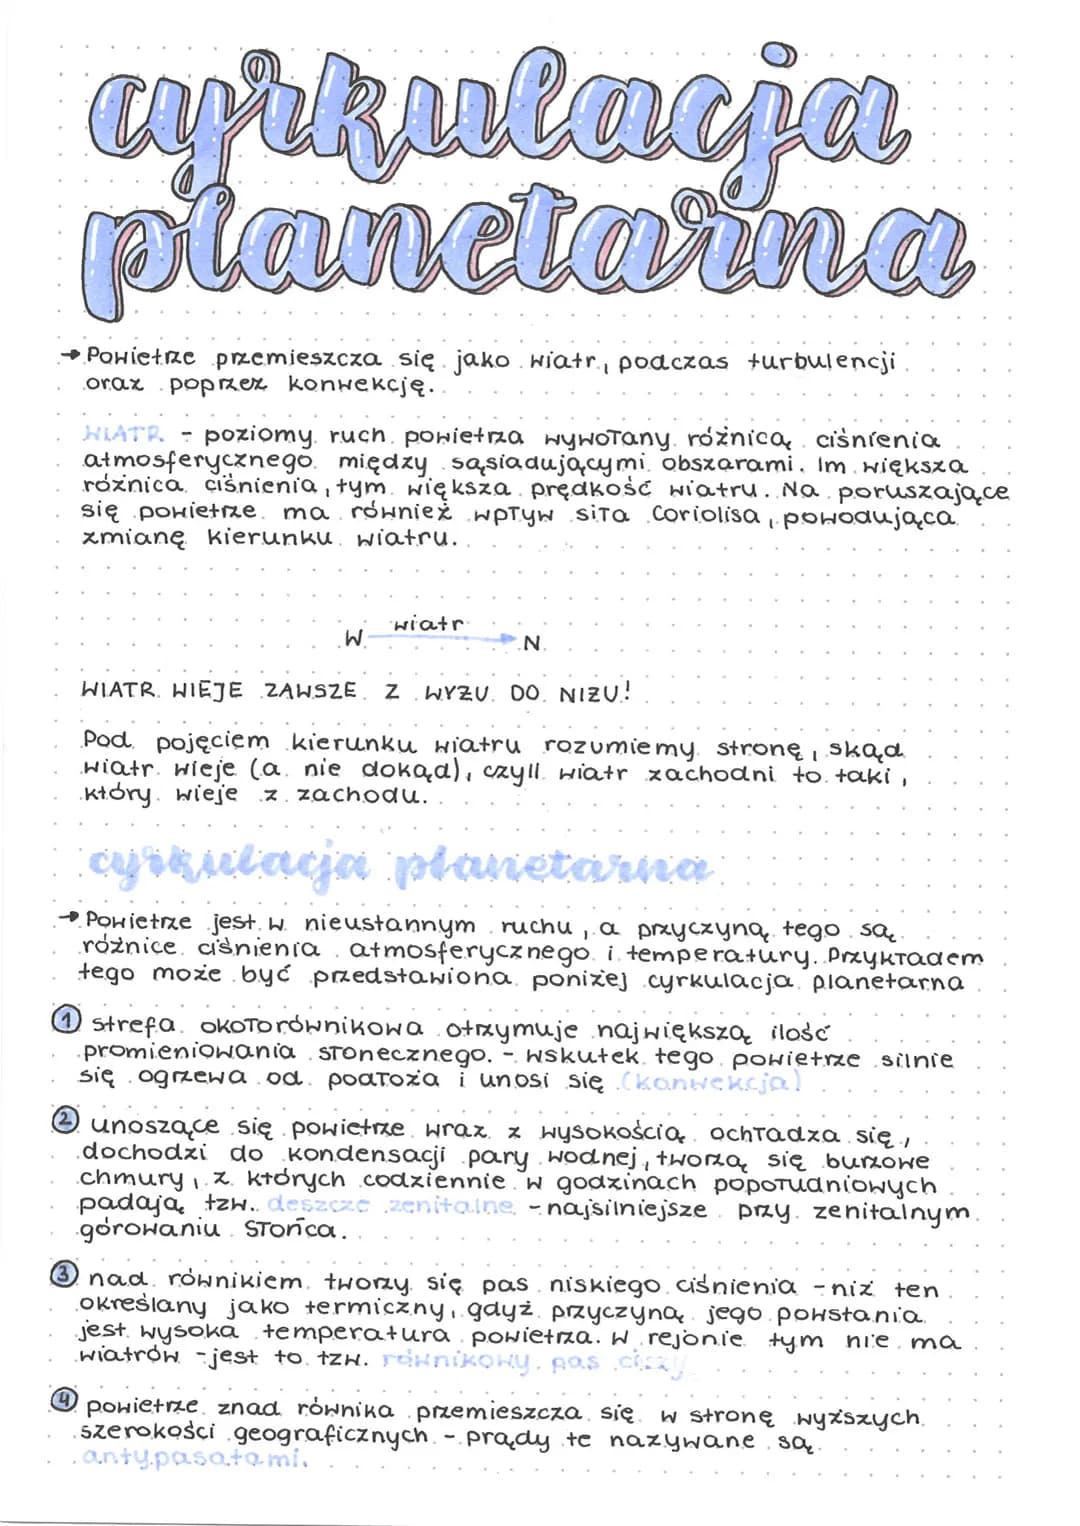 cyrkulacja
planetarna
→ Powietrze przemieszcza się jako wiatr, podczas turbulencji
oraz poprzez konwekcję.
WIATR - poziomy ruch powietrza wywołany różnicą ciśnienia
atmosferycznego między sąsiadującymi obszarami. Im większa
różnica ciśnienia, tym większa prędkość wiatru. Na poruszające
się powietrze ma również wpływ siła Coriolisa, powodująca
zmianę kierunku wiatru.
wiatr
W → N
WIATR WIEJE ZAWSZE Z WYŻU DO NIŻU!
Pod pojęciem kierunku wiatru rozumiemy stronę, skąd
wiatr wieje (a nie dokąd), czyli wiatr zachodni to taki,
który wieje z zachodu.
cyrkulacja planetarna
→ Powietrze jest w nieustannym ruchu, a przyczyną tego są
różnice ciśnienia atmosferycznego i temperatury. Przykładem
tego może być przedstawiona poniżej cyrkulacja planetarna
1 strefa okołorównikowa otrzymuje największą ilość
promieniowania słonecznego. - wskutek tego powietrze silnie
się ogrzewa od podłoża i unosi się (konwekcja)
2 unoszące się powietrze wraz z wysokością ochładza się,
dochodzi do kondensacji pary wodnej, tworzą się burzowe
chmury, z których codziennie w godzinach popołudniowych
padają tzw. deszcze zenitalne - najsilniejsze przy zenitalnym
górowaniu Słońca.
3 nad równikiem tworzy się pas niskiego ciśnienia - niż ten
określany jako termiczny, gdyż przyczyną jego powstania
jest wysoka temperatura powietrza. W rejonie tym nie ma
wiatrów - jest to tzw. równikowy pas ciszy
4 powietrze znad równika przemieszcza się w stronę wyższych
szerokości geograficznych - prądy te nazywane są
antypasatami.